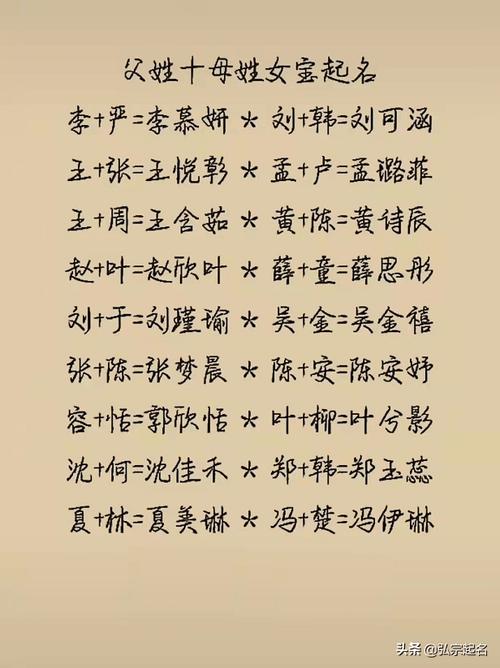 父姓十母姓女宝起名
李+严=李慕妍 * 刘+韩=刘可涵
王+张=王悦彰 * 孟+卢=孟璐菲
王+周=王含茹 * 黄+陈=黄诗辰
赵+叶=赵欣叶 * 薛+童=薛思彤
刘+于=刘瑾瑜 * 吴+金=吴金禧
张+陈=张梦晨 * 陈+安=陈安妤
容+恬=郭欣恬 * 叶+柳=叶兮影
沈+何=沈佳禾 * 郑+韩=郑玉蕊
夏+林=夏美琳 * 冯+楚=冯伊琳
头条 @弘宗起名